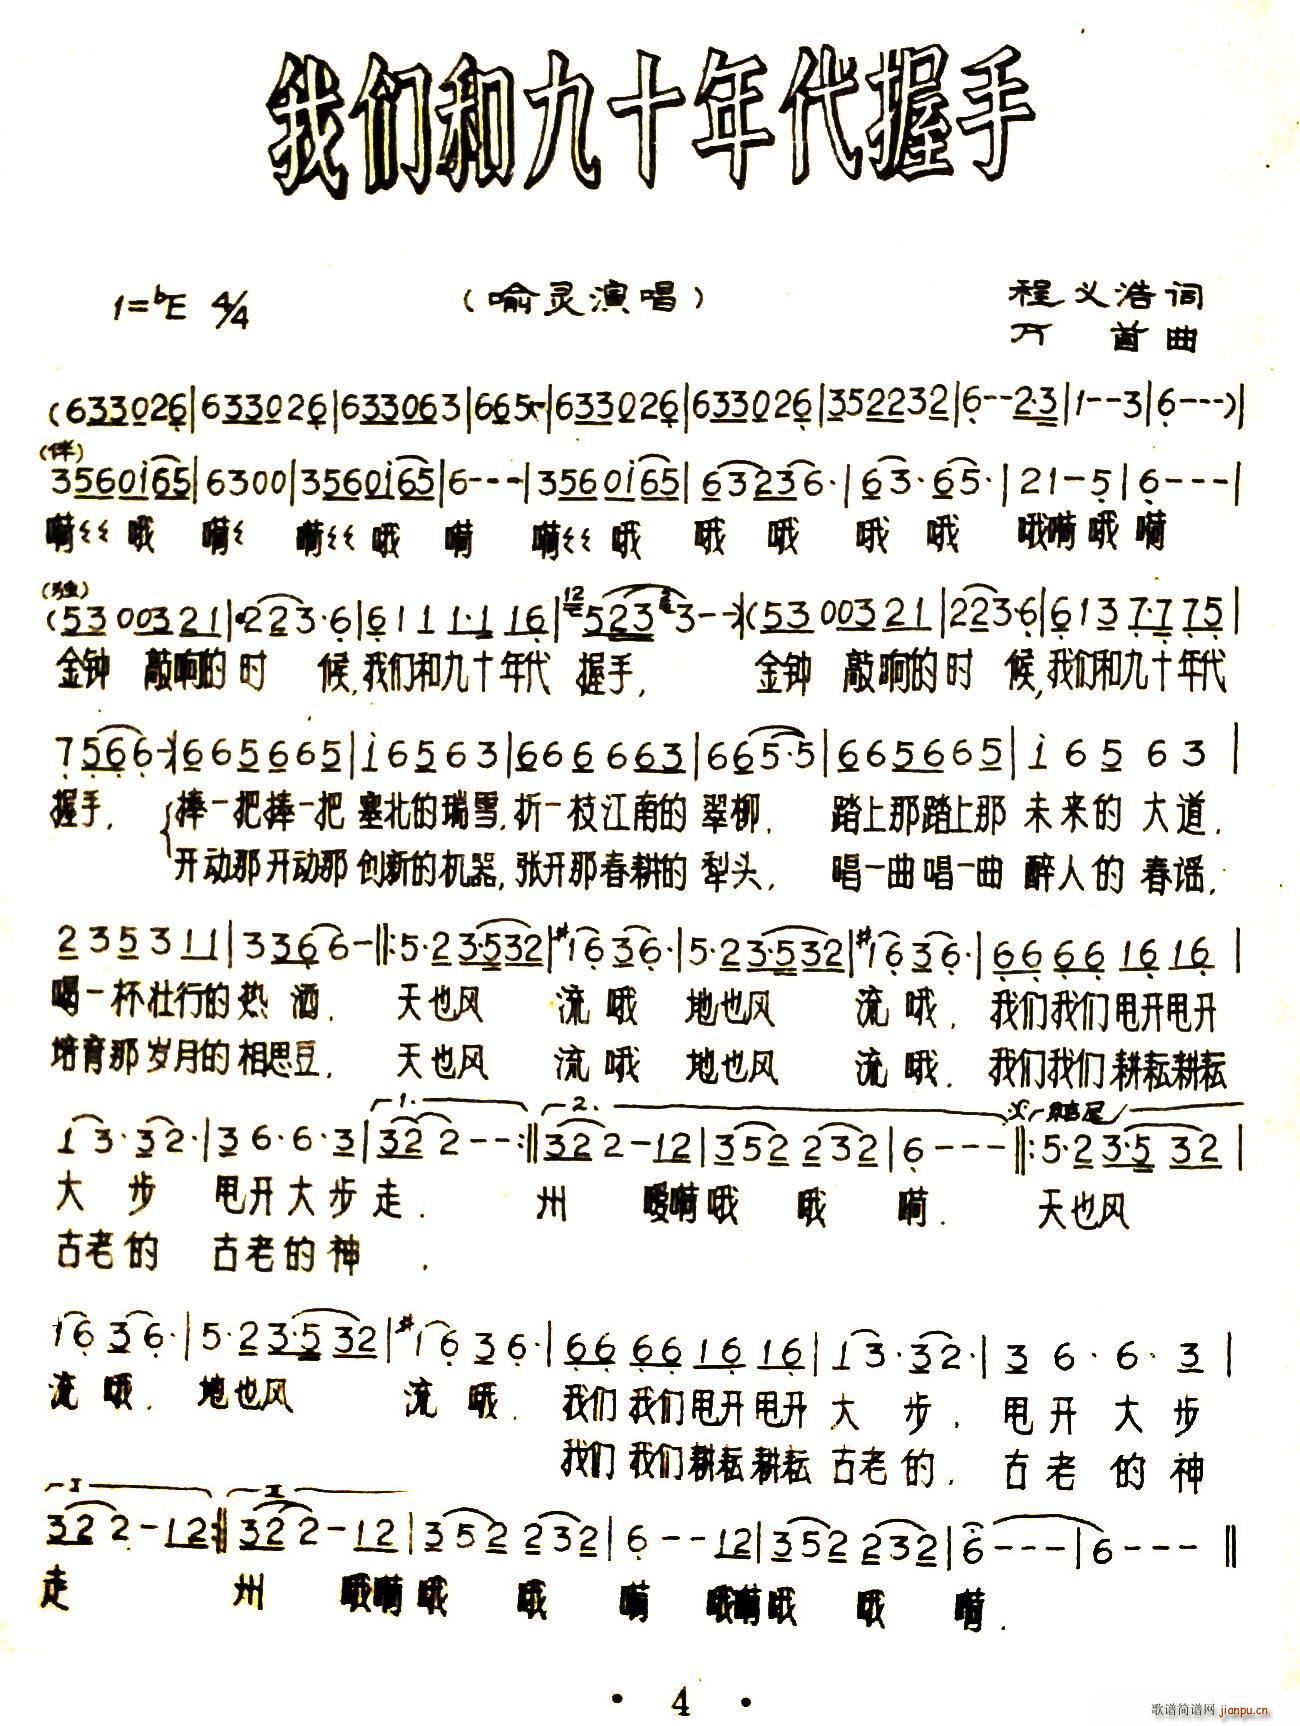 我们和九十年代握手
1=♭E 4/4 (喻灵演唱) 程义浩词
万首曲
(633026|633026|633063|665-|633026|633026|352232|6--2·3|1--3|6---)|
(伴)
3560i65|6300|3560i65|6---|3560i65|63236·|63·65·|21-5|6---|
嗬〻哦 嗬〻 嗬〻哦 嗬 嗬〻哦 哦 哦 哦 哦 哦嗬哦 嗬
(独)
(5300321|·223·6|6111·116|5233--|(5300321|223·6|6137·775|
金钟 敲响的时 候,我们和九十年代 握手, 金钟 敲响的时 候,我们和九十年代
7566-|665665|i6563|666663|6655·5|665665|i6563|
握手, 捧一把捧一把 塞北的瑞雪,折一枝江南的 翠柳, 踏上那踏上那 未来的 大道,
开动那开动那 创新的机器,张开那春耕的 犁头, 唱一曲唱一曲 醉人的 春谣,
235311|3366-‖:5·23·532|#1636·|5·23·532|#1636·|66661616|
喝一杯壮行的热 酒, 天也风 流哦 地也风 流哦, 我们我们甩开甩开
培育那岁月的相思豆, 天也风 流哦 地也风 流哦, 我们我们耕耘耕耘
1. 2. 结尾
13·32·|36·6·3|322--:‖322-12|352232|6---‖:5·23·532|
大步 甩开大步走. 州 嗳嗬哦 哦 嗬. 天也风
古老的 古老的神 .
1636·|5·23·532|#1636·|66661616|13·32·|36·6·3|
流哦, 地也风 流哦, 我们我们甩开甩开 大步, 甩开大步
我们我们耕耘耕耘 古老的, 古老的神
I II
322-12:‖322-12|352232|6--12|352232|6---|6---‖
走 州 哦嗬哦 哦 嗬 哦嗬哦 哦 嗬.
· 4 ·
歌谱简谱网
jianpu.cn